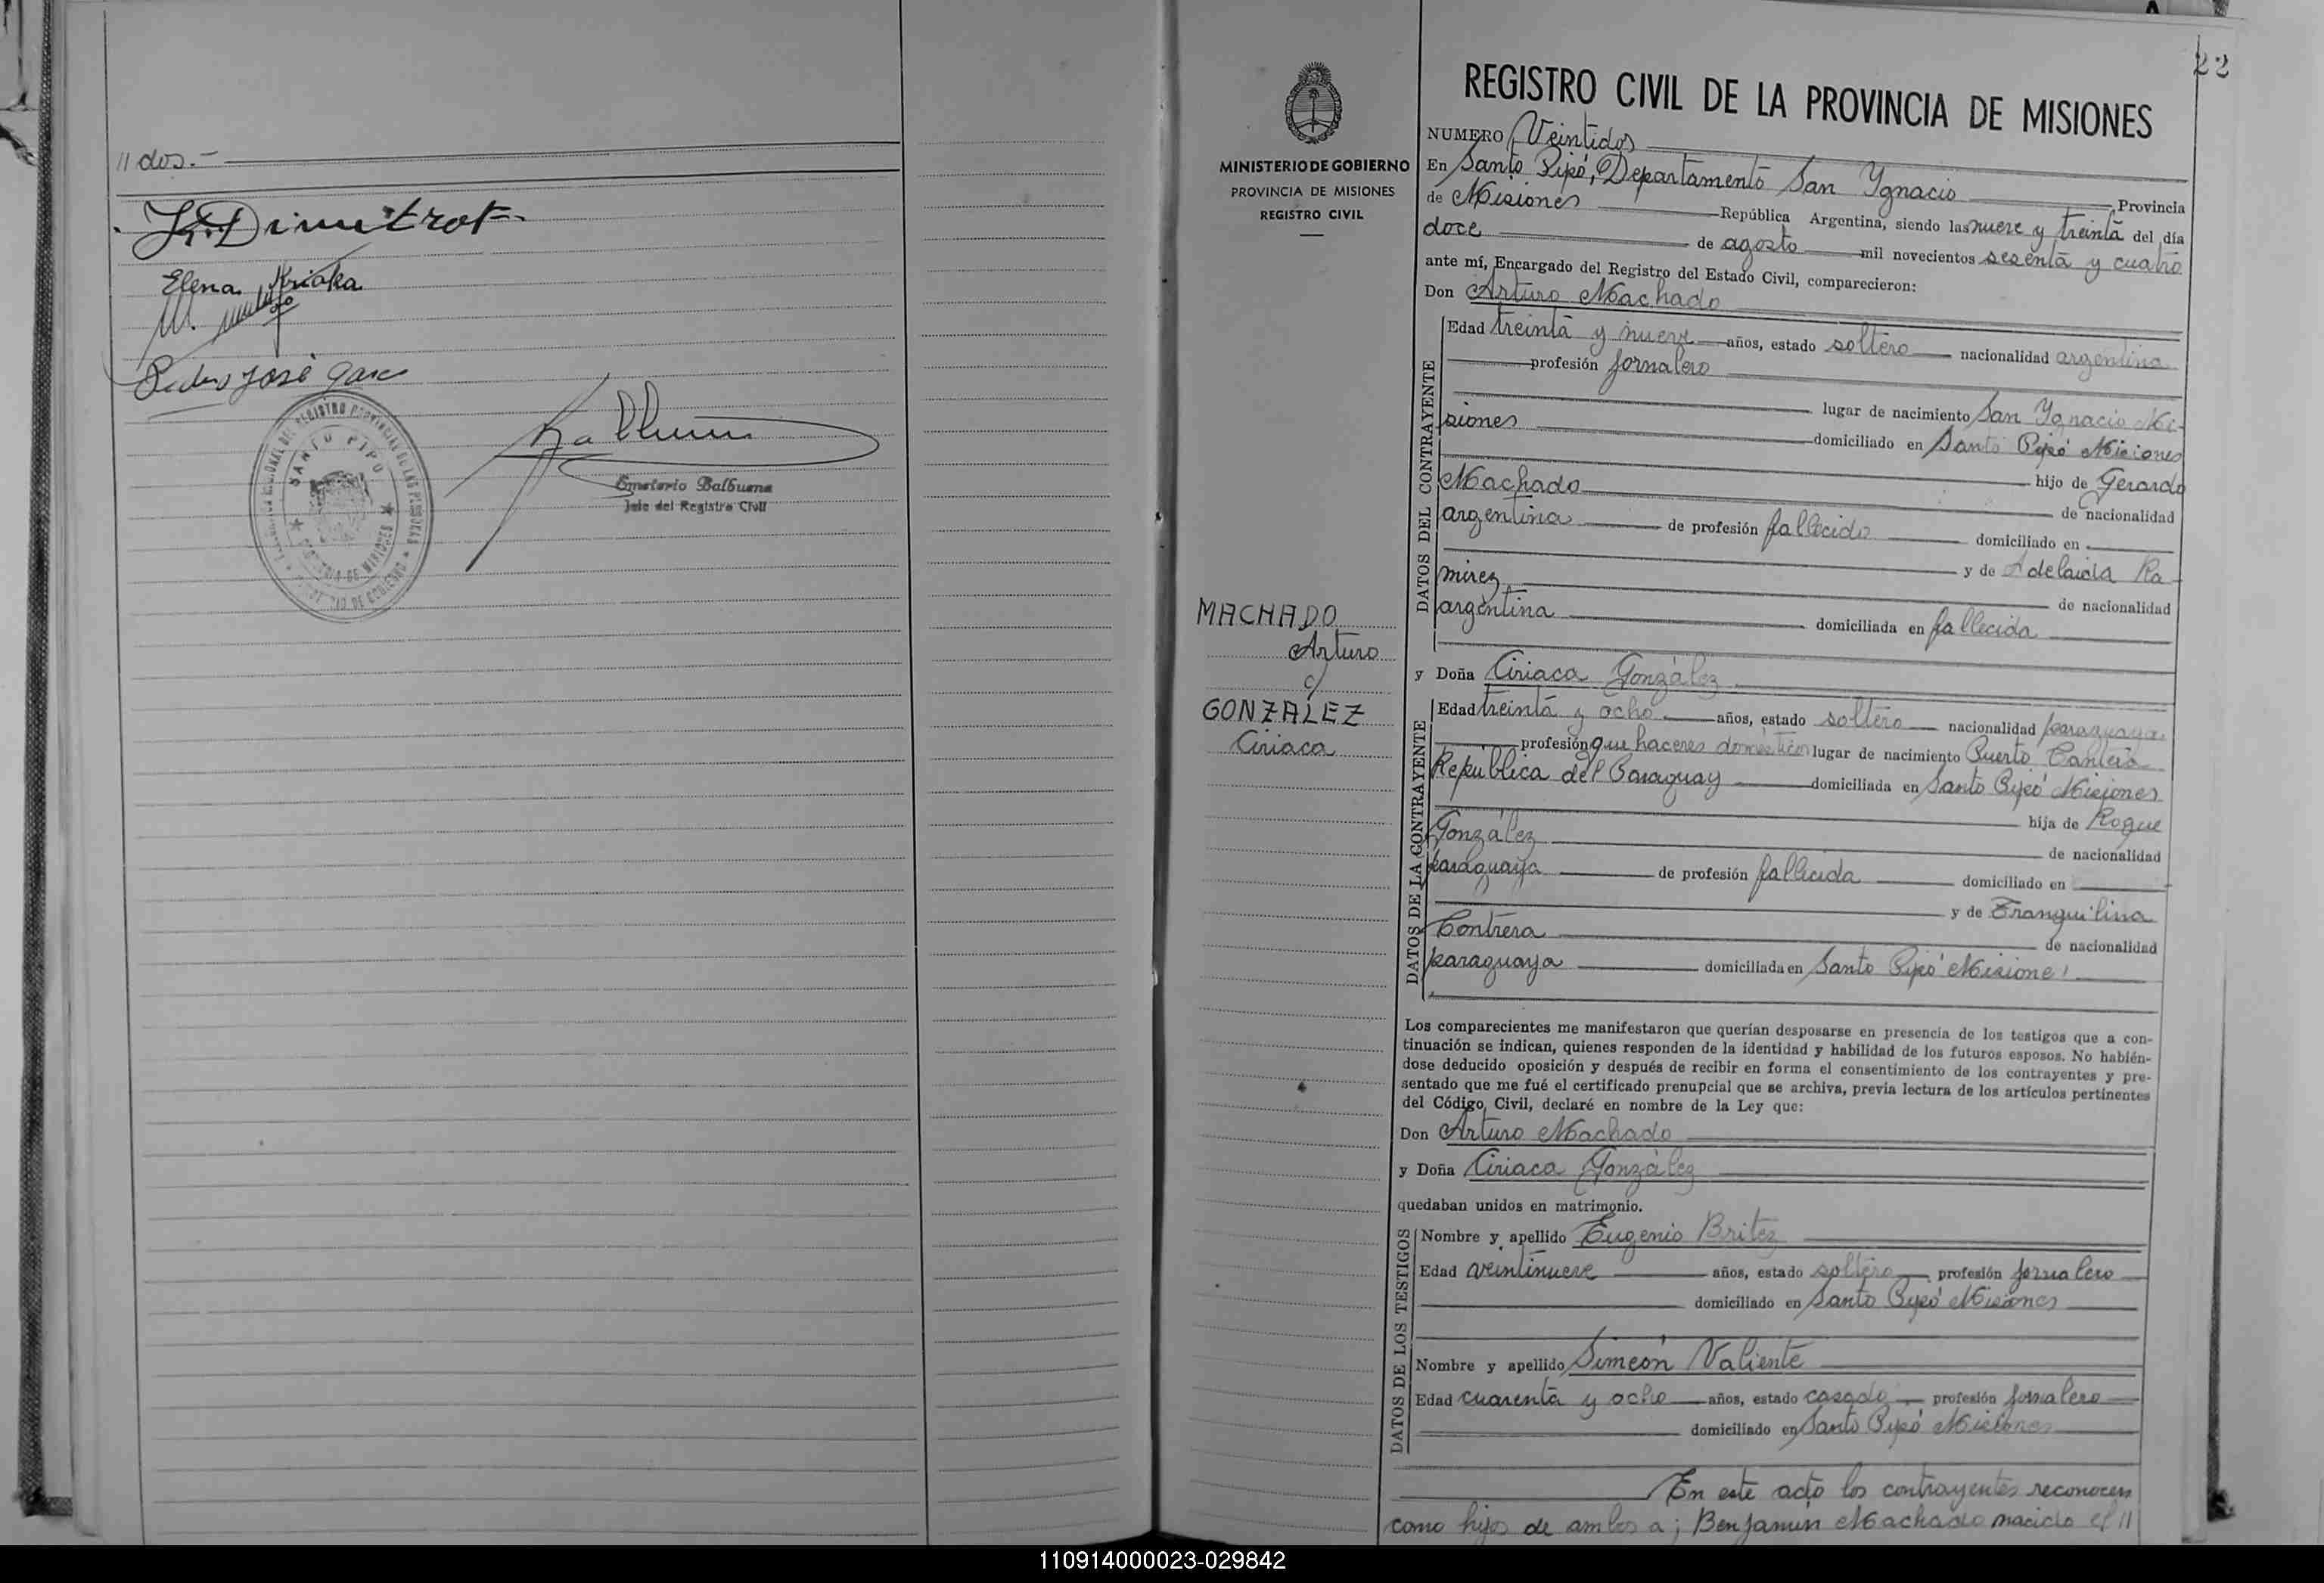 // dos.-
K. Dimitrof
Elena
M.
Pedro José
SANTO PIPO
Emeterio Balbuena
Jefe del Registro Civil
22
MINISTERIO DE GOBIERNO
PROVINCIA DE MISIONES
REGISTRO CIVIL
MACHADO
Arturo
c/
GONZALEZ
Ciriaca
REGISTRO CIVIL DE LA PROVINCIA DE MISIONES
NUMERO Veintidos
En Santo Pipó, Departamento San Ygnacio Provincia
de Misiones República Argentina, siendo las nueve y treinta del día
doce de agosto mil novecientos sesenta y cuatro
ante mí, Encargado del Registro del Estado Civil, comparecieron:
Don Arturo Machado
DATOS DEL CONTRAYENTE
Edad treinta y nueve años, estado soltero nacionalidad argentina
profesión jornalero
lugar de nacimiento San Ygnacio Mi-
siones domiciliado en Santo Pipó Misiones
hijo de Gerardo
Machado de nacionalidad
argentina de profesión fallecido domiciliado en
y de Adelaida Ra-
mirez de nacionalidad
argentina domiciliada en fallecida
y Doña Ciriaca González
DATOS DE LA CONTRAYENTE
Edad treinta y ocho años, estado soltero nacionalidad paraguaya
profesión que haceres domésticos lugar de nacimiento Puerto Cantera
República del Paraguay domiciliada en Santo Pipó Misiones
hija de Roque
González de nacionalidad
paraguaya de profesión fallecida domiciliado en
y de Tranquilina
Contrera de nacionalidad
paraguaya domiciliada en Santo Pipó Misiones
Los comparecientes me manifestaron que querían desposarse en presencia de los testigos que a con-
tinuación se indican, quienes responden de la identidad y habilidad de los futuros esposos. No habién-
dose deducido oposición y después de recibir en forma el consentimiento de los contrayentes y pre-
sentado que me fué el certificado prenupcial que se archiva, previa lectura de los artículos pertinentes
del Código Civil, declaré en nombre de la Ley que:
Don Arturo Machado
y Doña Ciriaca González
quedaban unidos en matrimonio.
DATOS DE LOS TESTIGOS
Nombre y apellido Eugenio Britez
Edad veintinueve años, estado soltero profesión jornalero
domiciliado en Santo Pipó Misiones
Nombre y apellido Simeón Valiente
Edad cuarenta y ocho años, estado casado profesión jornalero
domiciliado en Santo Pipó Misiones
En este acto los contrayentes reconocen
como hijos de ambos a; Benjamin Machado nacido el 11
110914000023-029842